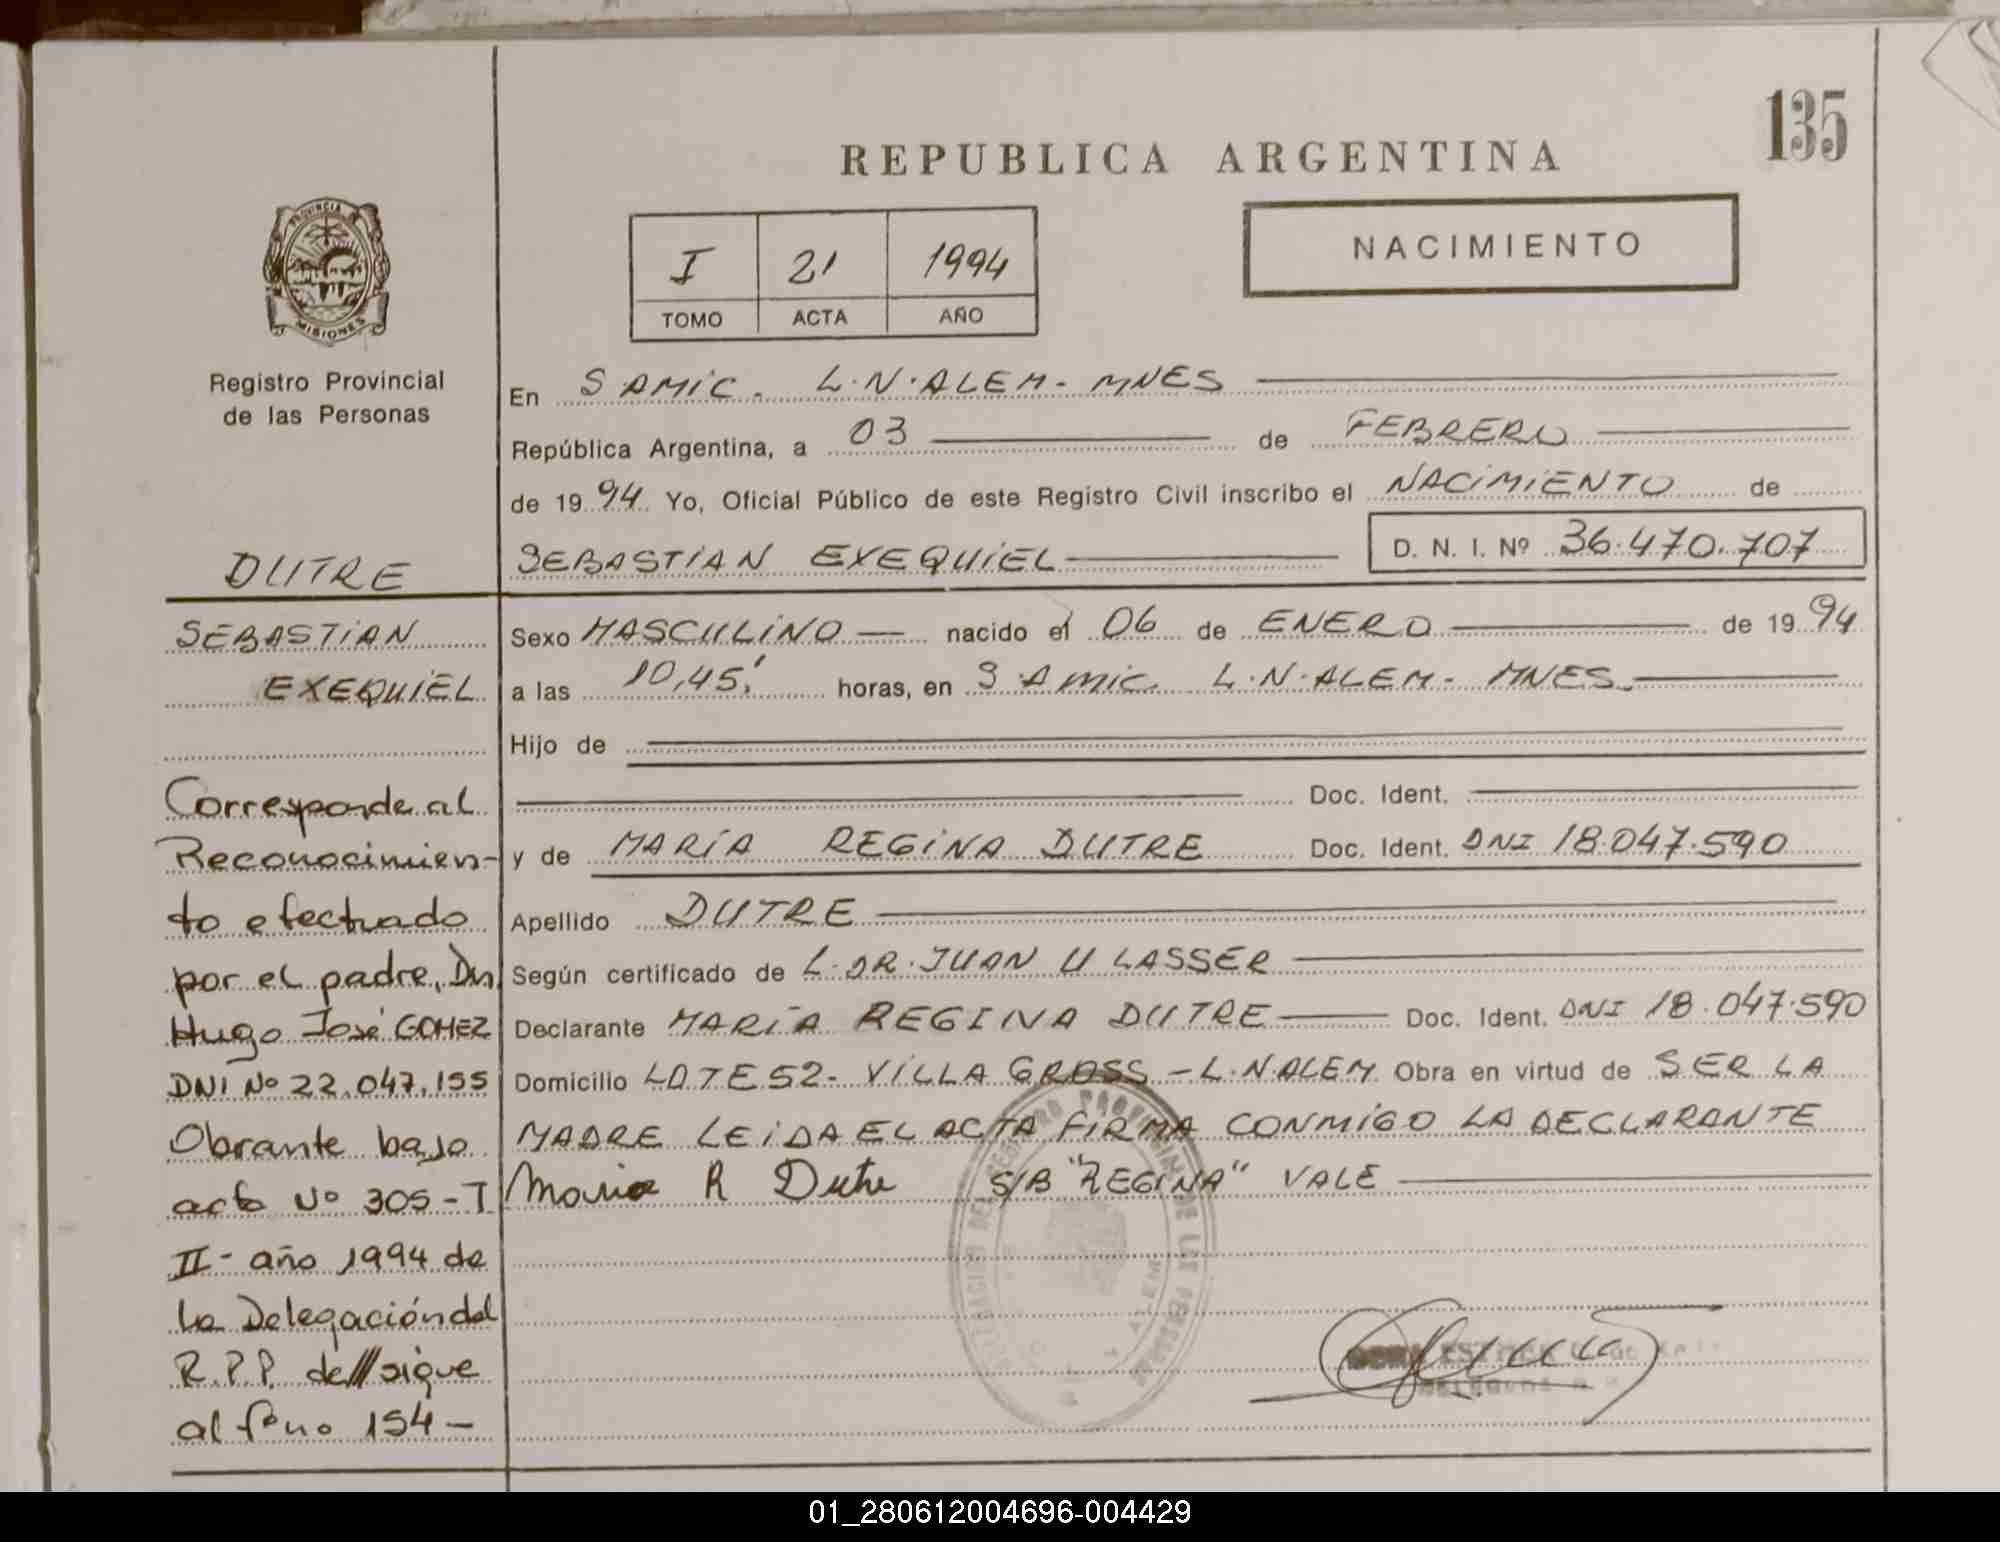 135
REPUBLICA ARGENTINA
NACIMIENTO
I 21 1994
TOMO ACTA AÑO
PROVINCIA DE
MISIONES
Registro Provincial
de las Personas
En S AMIC. L.N.ALEM- MNES
República Argentina, a 03 de FEBRERO
de 1994 Yo, Oficial Público de este Registro Civil inscribo el NACIMIENTO de
SEBASTIAN EXEQUIEL D. N. I. Nº 36.470.707
Sexo MASCULINO nacido el 06 de ENERO de 1994
a las 10,45' horas, en S AMIC. L.N.ALEM- MNES.
Hijo de
Doc. Ident.
y de MARÍA REGINA DUTRE Doc. Ident. DNI 18.047.590
Apellido DUTRE
Según certificado de L.DR.JUAN U LASSER
Declarante MARÍA REGINA DUTRE Doc. Ident. DNI 18.047.590
Domicilio LOTE 52- VILLA GROSS - L.N.ALEM Obra en virtud de SER LA
MADRE LEIDA EL ACTA FIRMA CONMIGO LA DECLARANTE
Maria R Dutre S/B "REGINA" VALE
DUTRE
SEBASTIAN
EXEQUIEL
Corresponde al
Reconocimien-
to efectuado
por el padre, Dn
Hugo José GOMEZ
DNI Nº 22.047.155
Obrante bajo
acta Nº 305-T
II- año 1994 de
la Delegación del
R.P.P. de// sigue
al fono 154-
01_280612004696-004429